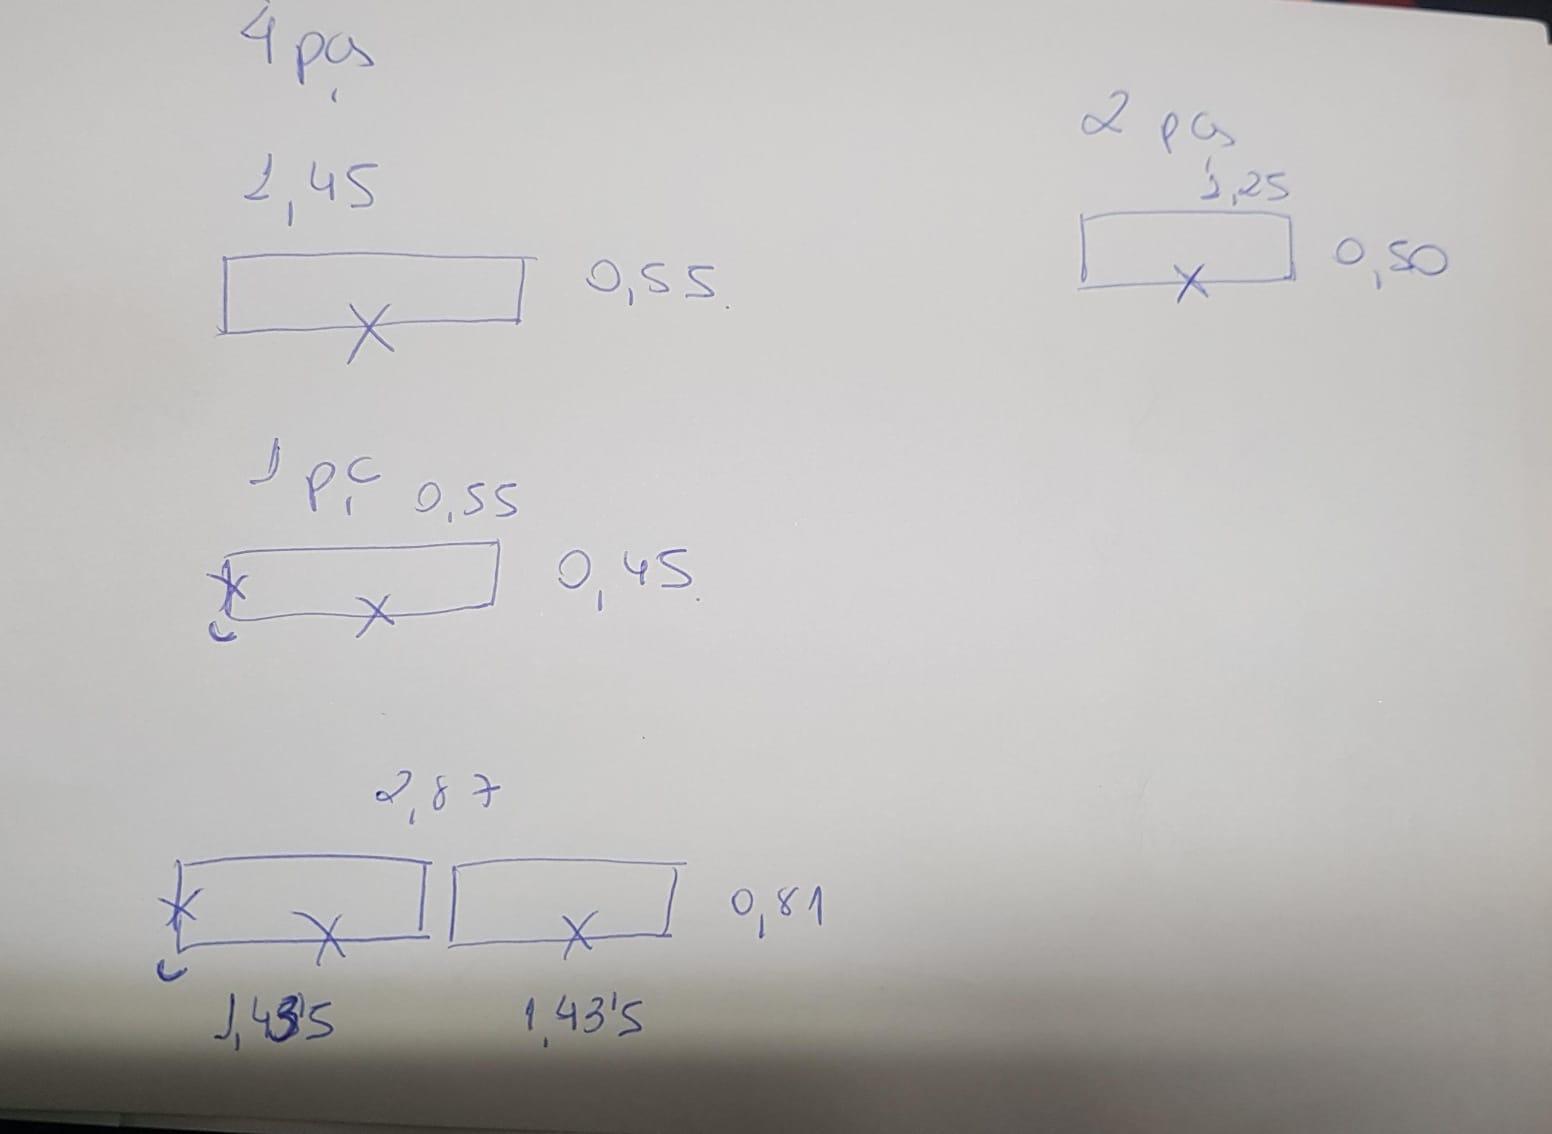 4 pçs
1,45
0,55.
1 pç 0,55
0,45.
2,87
0,81
1,43'5 1,43'5
2 pçs
1,25
0,50